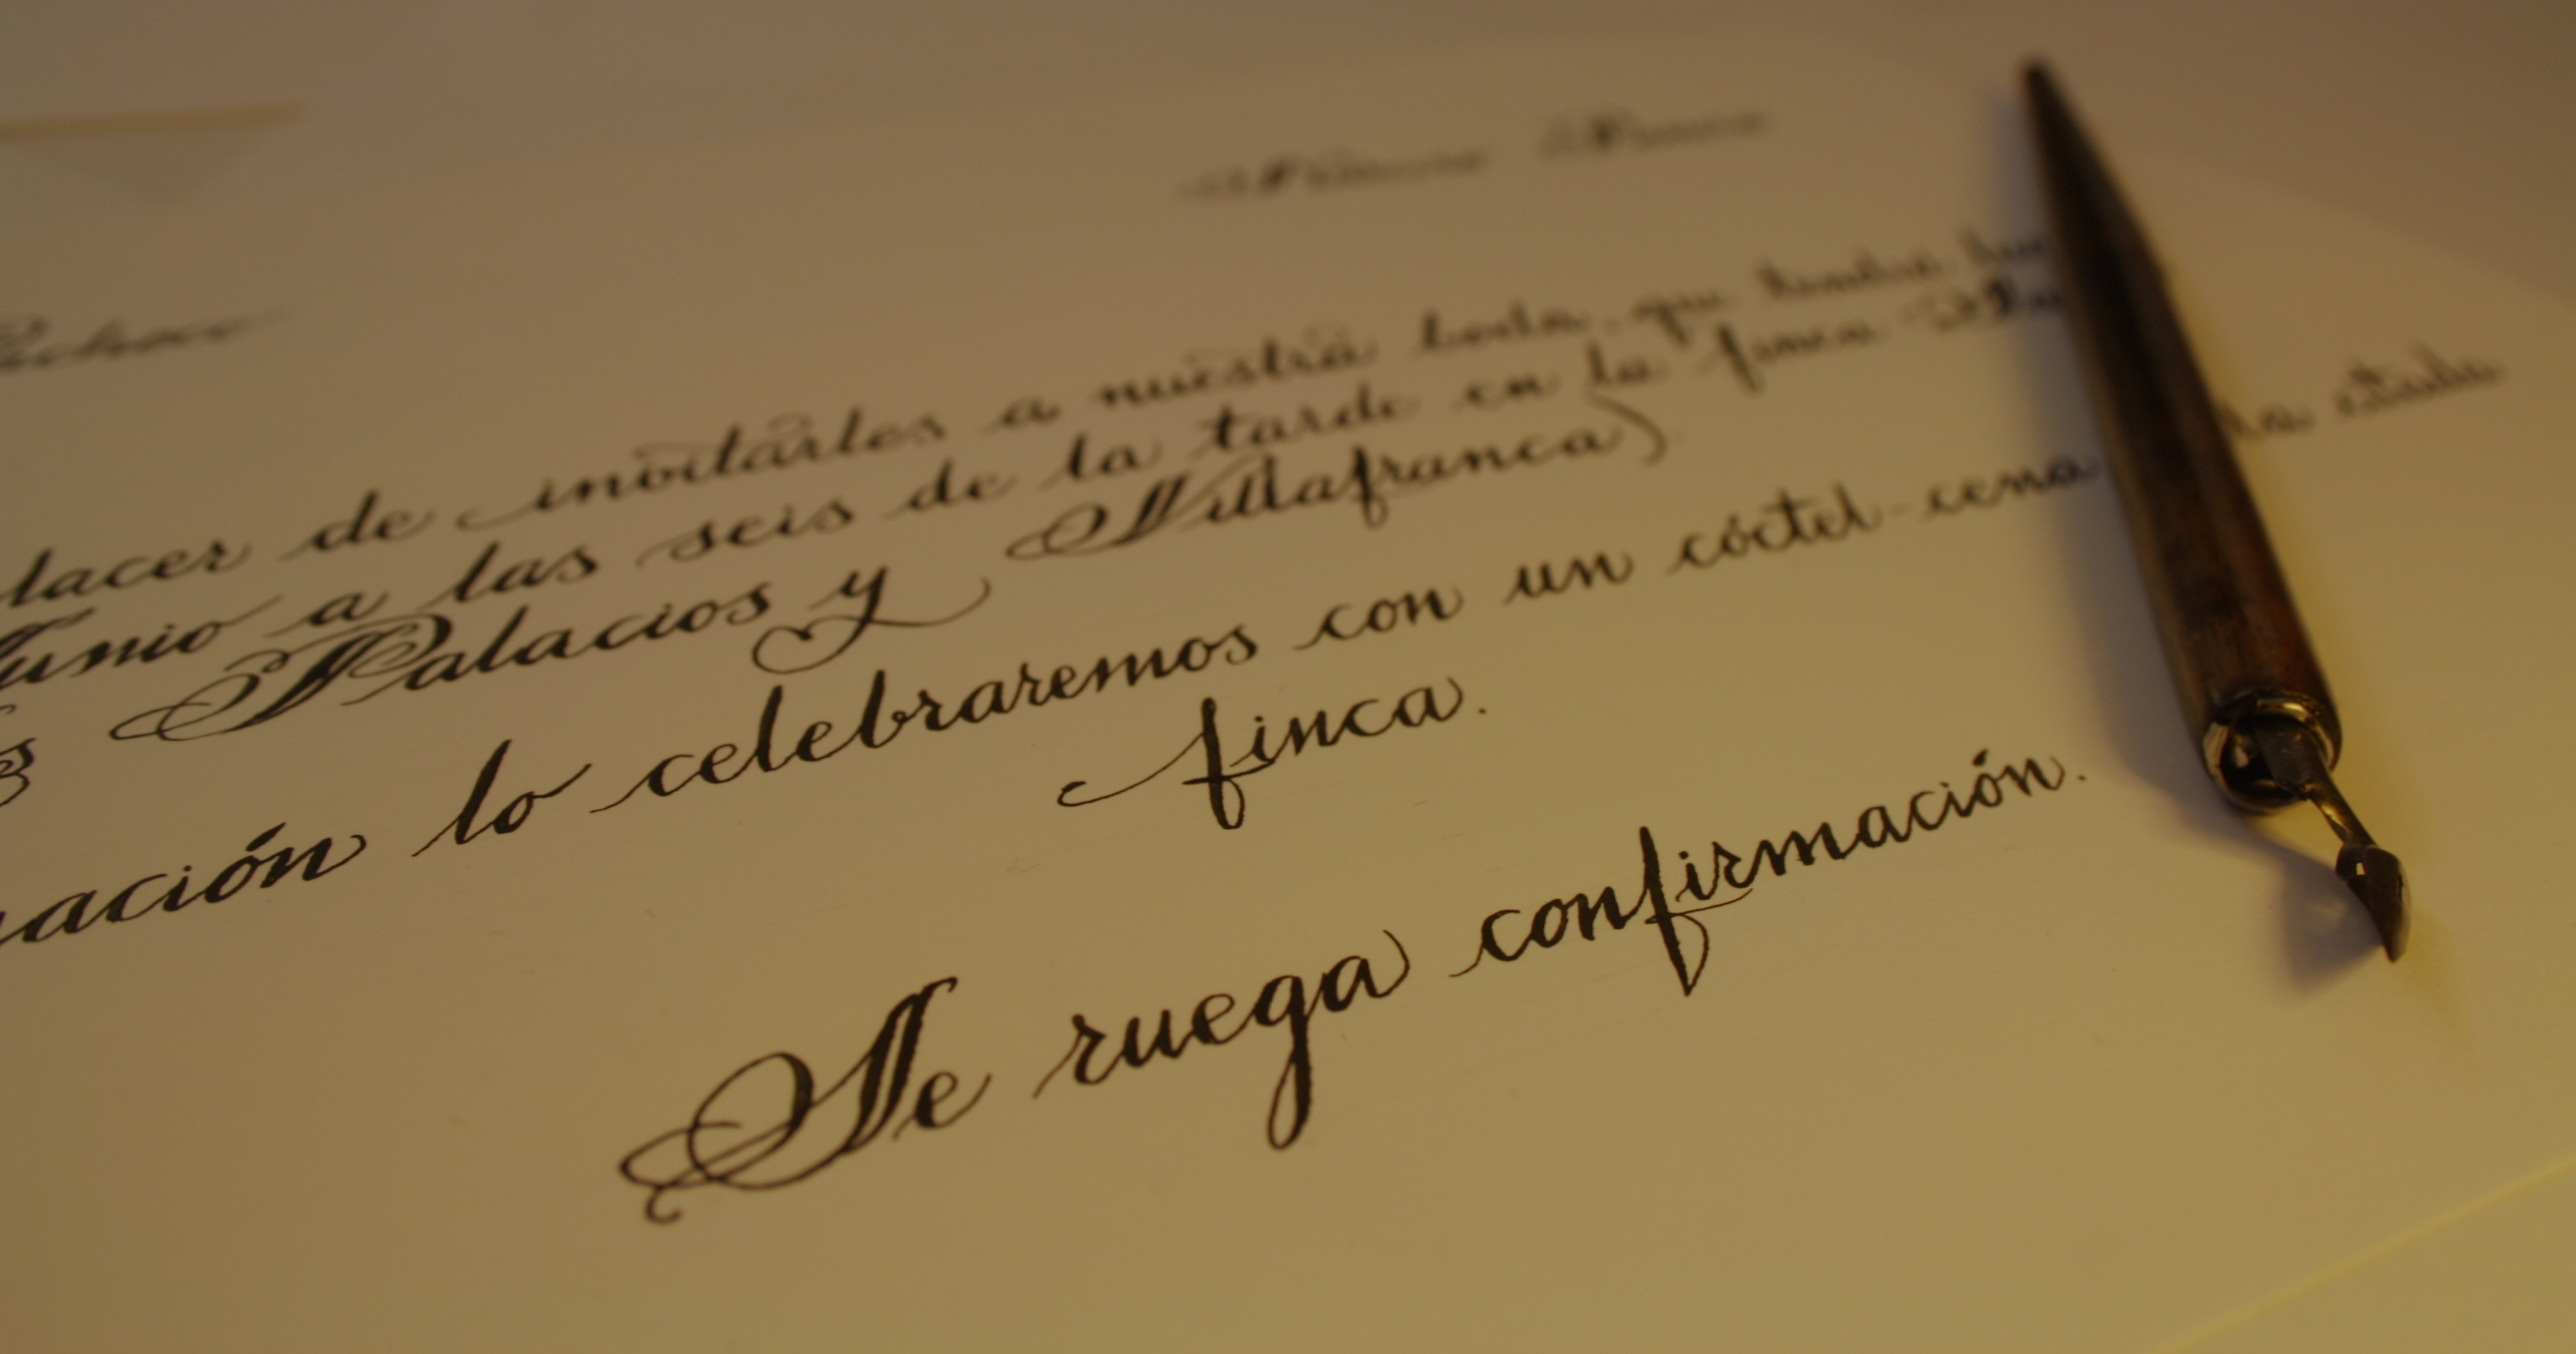 lacer de invitarles a nuestra boda, que tendrá
Junio a las seis de la tarde en la finca
Palacios y Villafranca).
ación lo celebraremos con un cóctel-cena
finca.
Se ruega confirmación.